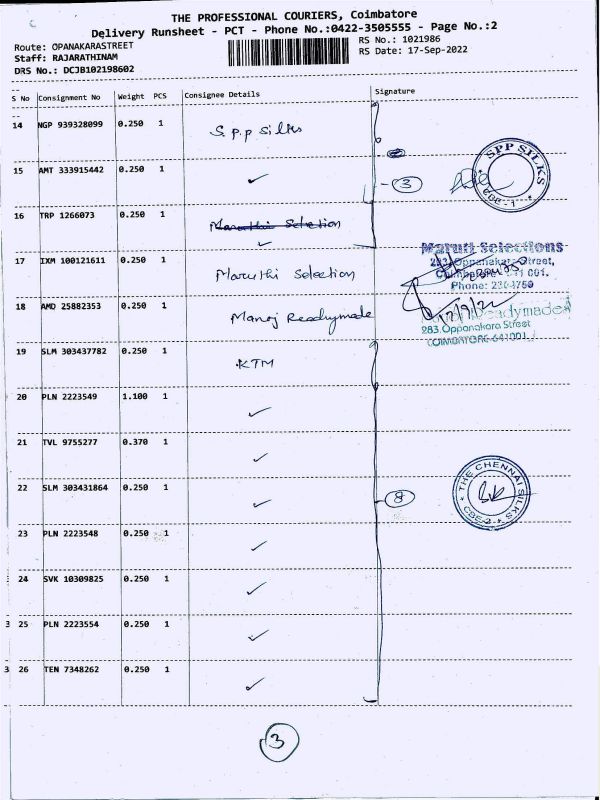 THE PROFESSIONAL COURIERS, Coimbatore
Delivery Runsheet - PCT - Phone No.:0422-3505555 - Page No.:2
Route: OPANAKARASTREET
Staff: RAJARATHINAM
DRS No.: DCJB102198602
RS No.: 1021986
RS Date: 17-Sep-2022
S No Consignment No Weight PCS Consignee Details Signature
14 NGP 939328099 0.250 1 S.p.p silks
15 AMT 333915442 0.250 1 ✓ 3
SPP SILKS
CBE - 1
16 TRP 1266073 0.250 1 Maruthi Selection ✓
17 IXM 100121611 0.250 1 Maruthi Selection
Maruti Selections
283, Oppanakara Street,
Coimbatore - 641 001.
Phone: 2304750
18 AMD 25882353 0.250 1 Manoj Readymade
17/9/22
Readymades
283 Oppanakara Street
COIMBATORE-641001.
19 SLM 303437782 0.250 1 KTM
20 PLN 2223549 1.100 1 ✓
21 TVL 9755277 0.370 1 ✓
22 SLM 303431864 0.250 1 ✓ 8
THE CHENNAI SILKS
CBE-2
23 PLN 2223548 0.250 1 ✓
24 SVK 10309825 0.250 1 ✓
3 25 PLN 2223554 0.250 1 ✓
3 26 TEN 7348262 0.250 1 ✓
3